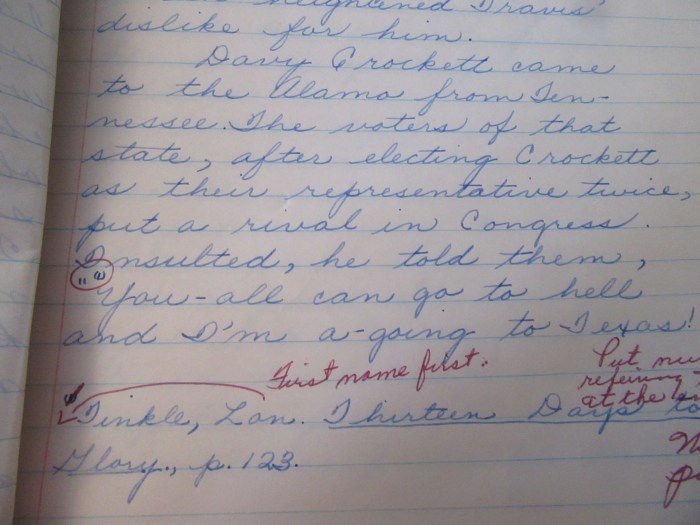 heightened Travis'
dislike for him.
Davy Crockett came
to the Alamo from Ten-
nessee. The voters of that
state, after electing Crockett
as their representative twice,
put a rival in Congress.
Insulted, he told them,
"You-all can go to hell
and I'm a-going to Texas!
First name first.
Put
refering
at the
Tinkle, Lon. Thirteen Days to
Glory., p. 123.